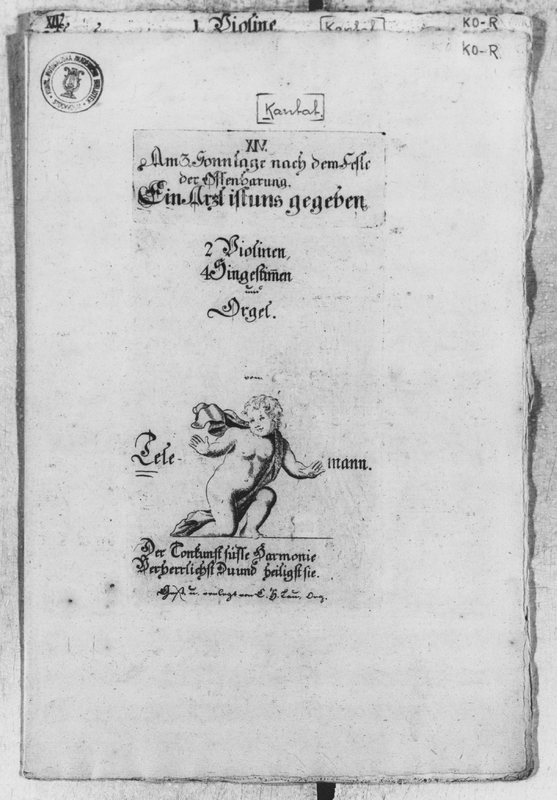 XIV.
1 Violine
Kantat.
KO-R
KO-R
Kantat.
XIV.
Am 3. Sonntage nach dem Feste
der Offenbarung.
Ein Arzt ist uns gegeben,
2 Violinen,
4 Singestim̅en
und
Orgel.
vom
Tele-
mann.
Der Tonkunst süsse Harmonie
Verherrlichst Du und heiligst sie.